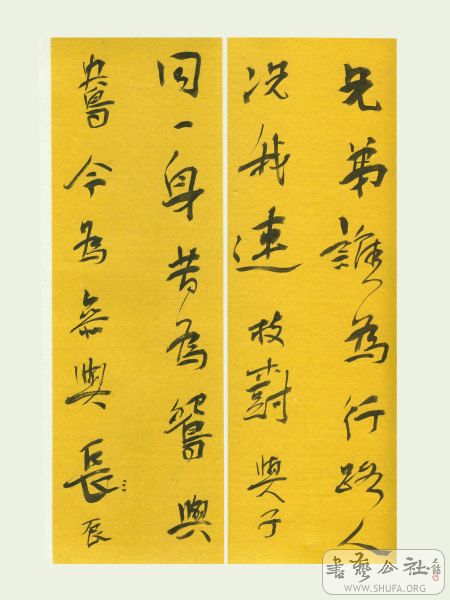 兄弟誰為行路人
况我連枝樹與子
同一身昔為鴛與
鴦今為參與長辰
書藝公社
WWW.SHUFA.ORG